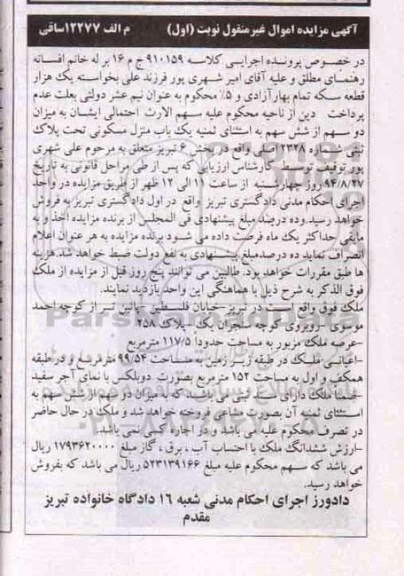 آگهی مزایده اموال غیرمنقول نوبت (اول) م الف ۱۲۲۷۷ساقی
در خصوص پرونده اجرایی کلاسه ۹۱۰۱۵۹ ج م ۱۶ بر له خانم افسانه
رهنمای مطلق و علیه آقای امیر شهری پور فرزند علی بخواسته یک هزار
قطعه سکه تمام بهار آزادی و ۵٪ محکوم به عنوان نیم عشر دولتی بعلت عدم
پرداخت دین از ناحیه محکوم علیه سهم الارث احتمالی ایشان به میزان
دو سهم از شش سهم به استثنای ثمنیه یک باب منزل مسکونی تحت پلاک
ثبتی شماره ۲۳۲۸ اصلی واقع در بخش ۶ تبریز متعلق به مرحوم علی شهری
پور توقیف توسط کارشناس ارزیابی که پس از طی مراحل قانونی به تاریخ
۹۴/۸/۲۷ روز چهارشنبه از ساعت ۱۱ الی ۱۲ ظهر از طریق مزایده در واحد
اجرای احکام مدنی دادگستری تبریز واقع در اول دادگستری تبریز به فروش
خواهد رسید.وده درصد مبلغ پیشنهادی فی المجلس از برنده مزایده اخذ و به
مابقی حداکثر یک ماه فرصت داده می شود برنده مزایده به هر عنوان اعلام
انصراف نماید ده درصدمبلغ پیشنهادی به نفع دولت ضبط خواهد شد.هزینه
ها طبق مقررات خواهد بود. طالبین می توانند پنج روز قبل از مزایده از ملک
فوق الذکر به شرح ذیل با هماهنگی این واحد بازدید نمایند.
ملک فوق واقع است در تبریز خیابان فلسطین پائین تر از کوچه احمد
موسوی - روبروی کوچه سنجران یک - پلاک ۲۵۸
-عرصه ملک مزبور به مساحت حدودا ۱۱۷/۵ مترمربع
-اعیانی ملک در طبقه زیر زمین به مساحت ۹۹/۵۴ مترمربع و در طبقه
همکف و اول به مساحت ۱۵۲ مترمربع بصورت دوبلکس با نمای آجر سفید
-ضمنا ملک دارای سند ثبتی می باشد که به میزان دو سهم از شش سهم به
استثنای ثمنیه آن بصورت مشاعی فروخته خواهد شد و ملک در حال حاضر
در تصرف محکوم علیه می باشد و در اجاره کسی نمی باشد.
-ارزش ششدانگ ملک با احتساب آب ، برق ، گاز مبلغ ۱۷۹۳۶۲۰۰۰۰ ریال
می باشد که سهم محکوم علیه مبلغ ۵۲۳۱۳۹۱۶۶ ریال می باشد که بفروش
خواهد رسید.
دادورز اجرای احکام مدنی شعبه ۱۶ دادگاه خانواده تبریز
مقدم